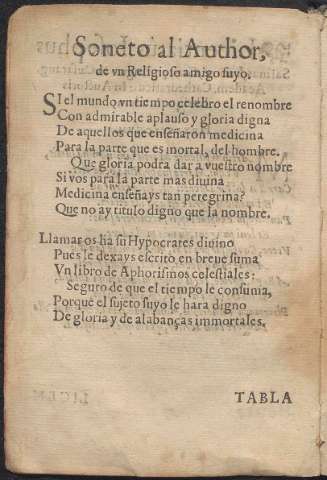 Soneto al Author,
de vn Religioso amigo suyo.
SI el mundo vn tiempo celebro el renombre
Con admirable aplauso y gloria digna
De aquellos que enseñaron medicina
Para la parte que es mortal, del hombre.
Que gloria podra dar a vuestro nombre
Si vos para la parte mas diuina
Medicina enseñays tan peregrina?
Que no ay titulo digno que la nombre.
Llamar os ha su Hypocrates diuino
Pues le dexays escrito en breue suma
Vn libro de Aphorismos celestiales:
Seguro de que el tiempo le consuma,
Porque el sujeto suyo le hara digno
De gloria y de alabanças immortales.
TABLA